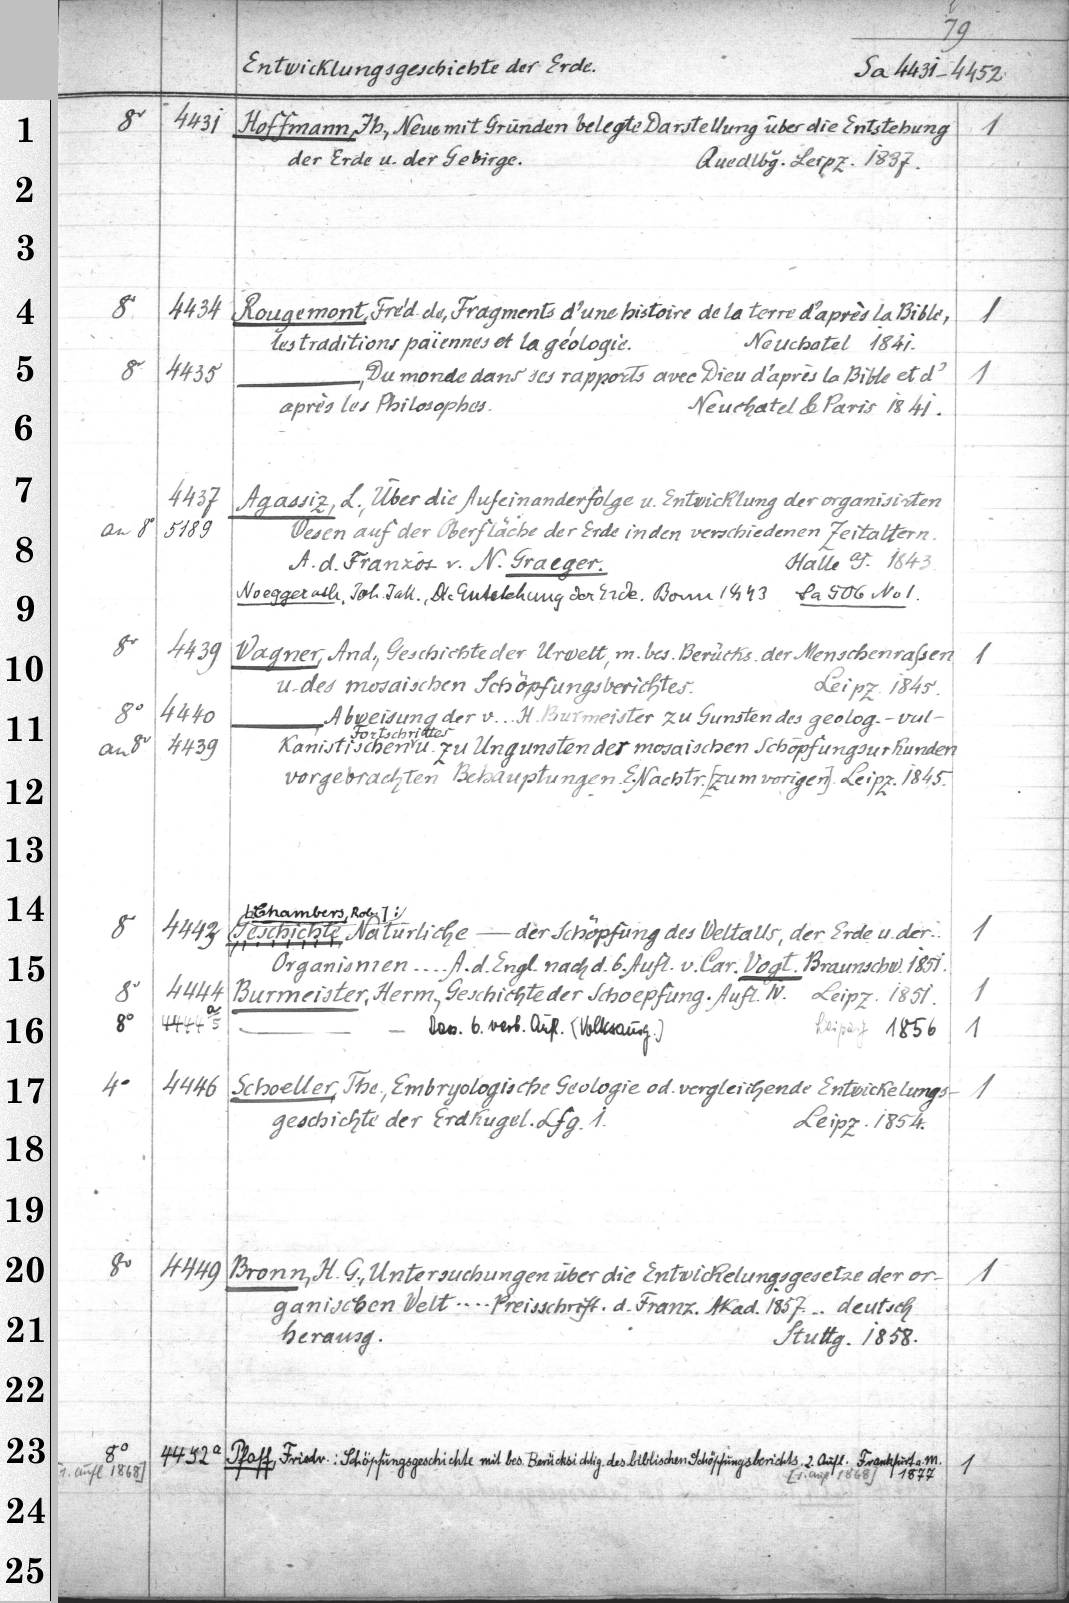 79
Entwicklungsgeschichte der Erde. Sa 4431-4452
1 8° 4431 Hoffmann, Th., Neue mit Gründen belegte Darstellung über die Entstehung 1
der Erde u. der Gebirge. Quedlbg. Leipz. 1837.
2
3
4 8° 4434 Rougemont, Fréd. de, Fragments d'une histoire de la terre d'après la Bible, 1
les traditions païennes et la géologie. Neuchatel 1841.
5 8° 4435 ———, Du monde dans ses rapports avec Dieu d'après la Bible et d' 1
après les Philosophes. Neuchatel & Paris 1841.
6
7 4437 Agassiz, L., Über die Aufeinanderfolge u. Entwicklung der organisirten
an 8° 5189 Wesen auf der Oberfläche der Erde in den verschiedenen Zeitaltern.
8 A. d. Französ. v. N. Graeger. Halle 1843
9 Noeggerath, Joh. Jak., Die Entstehung der Erde. Bonn 1843 Sa 506 No 1.
10 8° 4439 Wagner, And., Geschichte der Urwelt, m. bes. Berücks. der Menschenraßen 1
u. des mosaischen Schöpfungsberichtes. Leipz. 1845.
11 8° 4440 ———, Abweisung der v... H. Burmeister zu Gunsten des geolog.-vul-
Fortschrittes
an 8° 4439 kanistischen u. zu Ungunsten der mosaischen Schöpfungsurkunden
12 vorgebrachten Behauptungen. E. Nachtr. [zum vorigen]. Leipz. 1845.
13
14 [Chambers, Rob.]:
8° 4443 Geschichte, Natürliche — der Schöpfung des Weltalls, der Erde u. der.. 1
15 Organismen .... A. d. Engl. nach d. 6. Aufl. v. Car. Vogt. Braunschw. 1851.
8° 4444 Burmeister, Herm., Geschichte der Schoepfung. Aufl. IV. Leipz. 1851. 1
16 8° 4444 a ——— — Dass. 6. verb. Aufl. (Volksausg.) Leipzig 1856 1
17 4° 4446 Schoeller, The., Embryologische Geologie od. vergleichende Entwickelungs- 1
geschichte der Erdkugel. Lfg. 1. Leipz. 1854.
18
19
20 8° 4449 Bronn, H. G., Untersuchungen über die Entwickelungsgesetze der or- 1
ganischen Welt .... Preisschrift. d. Franz. Akad. 1857... deutsch
21 herausg. Stuttg. 1858.
22
23 8° 4452a Pfaff, Friedr.: Schöpfungsgeschichte mit bes. Berücksichtig. des biblischen Schöpfungsberichts. 2. Aufl. Frankfurt a. M. 1
[1. Aufl 1868] [1. Aufl 1868] 1877
24
25